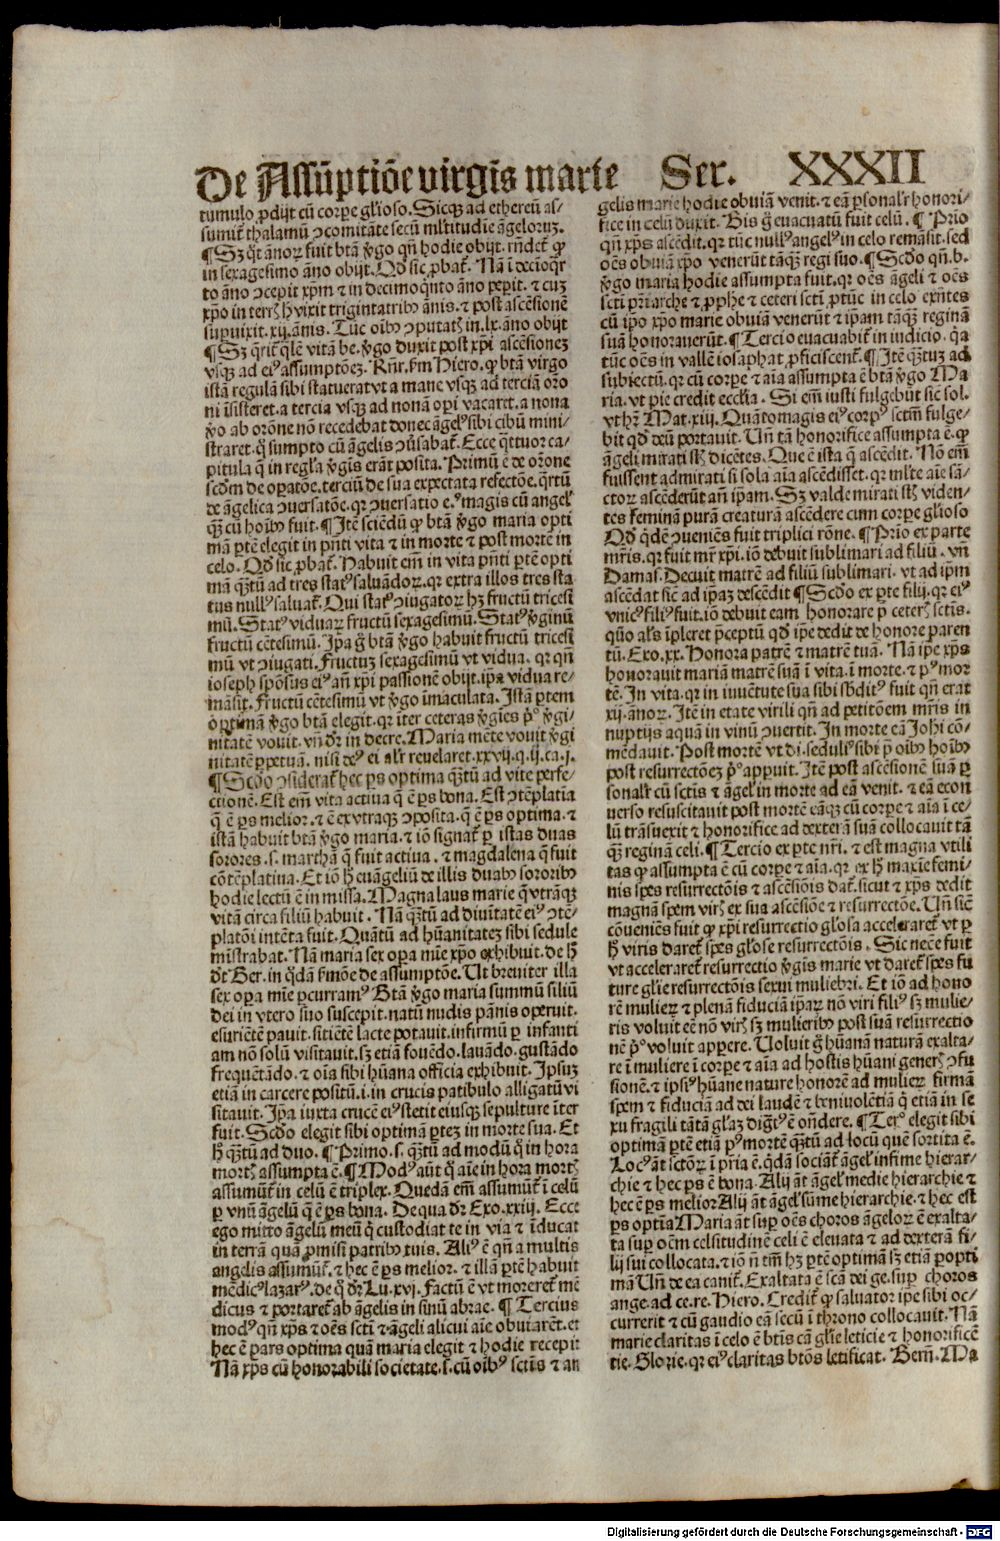 De Assūptiōe virgīs marie Ser. XXXII
tumulo ꝓdijt cū corꝑe gl̄ioso. Sicqꝫ ad ethereū as-
sumit̄ thalamū ↄcomitāte secū ml̄titudie āgeloruꝫ.
¶Sꝫ q̄t ānoꝝ fuit btā ṽgo qn̄ hodie obijt. rn̄det̄ ꝙ
in sexagesimo āno obijt. Qd̄ sic ꝓbat̄. Nā ī decīoq̄r
to āno ↄcepit xp̄m ⁊ in decimoq̄nto āno peꝑit. ⁊ cuꝫ
xp̄o in terꝭ hꝰ vixit trigintatribꝰ ānis. ⁊ post ascēsionē
supuixit .xij. ānis. Tūc oībꝰ ↄputatꝭ in .lx. āno obijt
¶Sꝫ q̄rit̄ q̄lē vitā be. ṽgo duxit post xp̄i ascēsioneꝫ
vsqꝫ ad eiꝰ assumptōeꝫ. Rn̄r. fm̄ Hiero. ꝙ btā virgo
istā regulā sibi statuerat vt a mane vsqꝫ ad terciā oro
ni īsisteret. a tercia vsqꝫ ad nonā oꝑi vacaret. a nona
ṽo ab orōne nō recedebat donec āgelꝰ sibi cibū mini-
straret. q̄ sumpto cū āgelis ↄūsabat̄. Ecce q̄ttuor ca-
pitula q̄ in regl̄a ṽgīs erāt posita. Primū ē de orōne
scdm̄ de oꝑatōe. terciū de sua expectata refectōe. q̄rtū
de āgelica ↄuersatōe. qꝛ ↄuersatio eꝰ magis cū angel̄
q̄ꝫ cū hoībꝰ fuit. ¶Itē sciēdū ꝙ btā ṽgo maria opti
mā ꝑtē elegit in pn̄ti vita ⁊ in morte ⁊ post mortē in
celo. Qd̄ sic ꝓbat̄. Habuit em̄ in vita pn̄ti ꝑtē opti
mā q̄ꝫtū ad tres statꝰ saluādoꝝ. qꝛ extra illos tres sta
tus nullꝰ saluat̄. Qui statꝰ ↄiugatoꝝ hꝫ fructū tricesi
mū. Statꝰ viduaꝝ fructū sexagesimū. Statꝰ ṽginū
fructū cētesimū. Ip̄a g̊ btā ṽgo habuit fructū tricesi
mū vt ↄiugati. Fructuꝫ sexagesimū vt vidua. qꝛ qn̄
ioseph spōsus eiꝰ an̄ xp̄i passionē obijt. ip̄a vidua re-
māsit. Fructū cētesimū vt ṽgo īmaculata. Istā ꝑtem
optimā ṽgo btā elegit. qꝛ iter ceteras ṽgīes pͦ ṽgi-
nitatē vouit. vn̄ dr̄ in decre. Maria mēte vouit ṽgi
nitatē ꝑpetuā. nisi deꝰ ei alr̄ reuelaret .xxvij. q. ij. ca. j.
¶Scdo ↄsiderat̄ hec ps optima q̄ꝫtū ad vite perfe-
ctionē. Est em̄ vita actiua q̄ ē ps bona. Est ↄtēplatia
q̄ ē ps melior. ⁊ ē ex vtraqꝫ ↄposita. q̄ ē ps optima. ⁊
istā habuit btā ṽgo maria. ⁊ iō signat̄ ꝑ istas duas
sorores .s. marthā q̄ fuit actiua. ⁊ magdalena q̄ fuit
cōtēplatiua. Et iō h̄ euāgeliū de illis duabꝰ sororibꝰ
hodie lectū ē in missa. Magna laus marie q̄ vtrāqꝫ
vitā circa filiū habuit. Nā q̄ꝫtū ad diuitatē eiꝰ ↄtē-
platōi intēta fuit. Quātū ad hūanitateꝫ sibi sedule
mīstrabat. Nā maria sex oꝑa mīe xp̄o exhibuit. de h̄
dt̄ Ber. in q̄dā ẜmōe de assumptōe. Ut breuiter illa
sex oꝑa mīe ꝑcurramꝰ Btā ṽgo maria summū filiū
dei in vtero suo suscepit. natū nudis pānis oꝑuit.
esuriētē pauit. sitiētē lacte potauit. infirmū ꝑ infanti
am nō solū visitauit. sꝫ etiā fouēdo. lauādo. gustādo
frequētādo. ⁊ oīa sibi hūana officia exhibuit. Ipsuꝫ
etiā in carcere positū. i. in crucis patibulo alligatū vi
sitauit. Ip̄a iuxta crucē eiꝰ stetit eiusqꝫ sepulture īter
fuit. Scdo elegit sibi optimā ꝑteꝫ in morte sua. Et
h̄ q̄ꝫtū ad duo. ¶Primo .s. q̄ꝫtū ad modū q̄ in hora
mortꝭ assumpta ē. ¶Modꝰ aūt q̄ aīe in hora mortꝭ
assumūt̄ in celū ē triplex. Quedā em̄ assumūt̄ ī celū
ꝑ vnū āgelū q̄ ē ps bona. De qua dr̄ Exo. xxiij. Ecce
ego mitto āgelū meū q̄ custodiat te in via ⁊ īducat
in terrā quā ꝓmisi patribꝰ tuis. Aliꝰ ē qn̄ a multis
angelis assumūt̄. ⁊ hec ē ps melior. ⁊ illā ꝑtē habuit
mēdicꝰ lazarꝰ. de q̄ dr̄ Lu. xvi. Factū ē vt moreret̄ mē
dicus ⁊ portaret̄ ab āgelis in sinū abrae. ¶Tercius
modꝰ qn̄ xp̄s ⁊ oēs scti ⁊ āgeli alicui aīe obuiarēt. et
hec ē pars optima quā maria elegit ⁊ hodie recepit
Nā xp̄s cū honorabili societate .s. cū oībꝰ sctīs ⁊ an
gelis marie hodie obuiā venit. ⁊ eā ꝑsonalr̄ honori-
fice in celū duxit. Bis g̊ euacuatū fuit celū. ¶Prio
qn̄ xp̄s ascēdit. qꝛ tūc nullꝰ angelꝰ in celo remāsit. sed
oēs obuiā xp̄o venerūt tāqꝫ regi suo. ¶Scdo qn̄. b.
ṽgo maria hodie assumpta fuit. qꝛ oēs āgeli ⁊ oēs
scti pr̄iarche ⁊ ꝓphe ⁊ ceteri scti ꝓtūc in celo exn̄tes
cū ip̄o xp̄o marie obuiā venerūt ⁊ ip̄am tāqꝫ reginā
suā honorauerūt. ¶Tercio euacuabit̄ in iudicio. qa
tūc oēs in vallē iosaphat ꝓficiscent̄. ¶Itē q̄ꝫtuꝫ ad
subiectū. qꝛ cū corꝑe ⁊ aīa assumpta ē btā ṽgo Ma
ria. vt pie credit eccl̄ia. Si em̄ iusti fulgebūt sic̄ sol.
vt hr̄ Mat. xiij. Quātomagis eiꝰ corpꝰ sctm̄ fulge-
bit qd̄ deū portauit. Un̄ tā honorifice assumpta ē. ꝙ
āgeli mirati st̄ dicētes. Que ē ista q̄ ascēdit. Nō em̄
fuissent admirati si sola aīa ascēdisset. qꝛ ml̄te aīe sā-
ctoꝝ ascēderūt an̄ ip̄am. Sꝫ valde mirati st̄ viden-
tes feminā purā creaturā ascēdere cum corꝑe gl̄ioso
Qd̄ q̄dē ↄueniēs fuit triplici rōne. ¶Prio ex parte
mr̄is. qꝛ fuit mr̄ xp̄i. iō debuit sublimari ad filiū. vn̄
Damas. Decuit matrē ad filiū sublimari. vt ad ip̄m
ascēdat sic̄ ad ip̄aꝫ descēdit ¶Scdo ex ꝑte filij. qꝛ eiꝰ
vnicꝰ filiꝰ fuit. iō debuit eam honorare p̄ ceterꝭ sctis.
quō als̄ īpleret p̄ceptū qd̄ ip̄e dedit de honore paren
tū. Exo. xx. Honora patrē ⁊ matrē tuā. Nā ip̄e xp̄s
honorauit mariā matrē suā ī vita. ī morte. ⁊ pꝰ mor
tē. In vita. qꝛ in iuuētute sua sibi sb̄ditꝰ fuit qn̄ erat
xij. ānoꝝ. Itē in etate virili qn̄ ad petitōem mr̄is in
nuptijs aquā in vinū ↄuertit. In morte eā Johī cō-
mēdauit. Post mortē vt di. seduliꝰ sibi p̄ oībꝰ hoībꝰ
post resurrectōeꝫ pͦ appuit. Itē post ascēsionē suā ꝑ
sonalr̄ cū sctis ⁊ āgel̄ in morte ad eā venit. ⁊ eā econ
uerso resuscitauit post mortē eāqꝫ cū corꝑe ⁊ aīa ī ce-
lū trāsuexit ⁊ honorifice ad dexterā suā collocauit tā
q̄ꝫ reginā celi. ¶Tercio ex ꝑte nr̄i. ⁊ est magna vtili
tas ꝙ assumpta ē cū corꝑe ⁊ aīa. qꝛ ex h̄ maxīe femi-
nis spes resurrectōis ⁊ ascēsiōis dat̄. sicut ⁊ xp̄s dedit
magnā spem virꝭ ex sua ascēsiōe ⁊ resurrectōe. Un̄ sic̄
cōueniēs fuit ꝙ xp̄i resurrectio gl̄osa acceleraret̄ vt ꝑ
h̄ viris daret̄ spes gl̄ose resurrectōis. Sic necē fuit
vt acceleraret̄ resurrectio ṽgis marie vt daret̄ spes fu
ture gl̄ie resurrectōis sexui muliebri. Et iō ad hono
rē mulieꝝ ⁊ plenā fiduciā ip̄aꝝ nō viri filiꝰ sꝫ mulie-
ris voluit eē nō virꝭ sꝫ mulieribꝰ post suā resurrectio
nē pͦ voluit apꝑere. Uoluit g̊ hūanā naturā exalta-
re ī muliere ī corꝑe ⁊ aīa ad hostis hūani generꝭ ↄfu
sionē. ⁊ ipsiꝰ hūane nature honorē ad mulieꝝ firmā
spem ⁊ fiduciā ad dei laudē ⁊ beniuolētiā q̄ etiā in se
xu fragili tātā gl̄aꝫ digtꝰ ē on̄dere. ¶Terꝰ elegit sibi
optimā ꝑtē etiā pꝰ mortē q̄ꝫtū ad locū quē sortita ē.
Locꝰ āt sctōꝝ ī pria ē. q̄dā sociāt̄ āgel̄ infime hierar-
chie ⁊ hec ps ē bona. Alij āt āgel̄ medie hierarchie ⁊
hec ē ps melior Alij āt āgel̄ sūme hierarchie. ⁊ hec est
ps optīa Maria āt suꝑ oēs choros āgeloꝝ ē exalta-
ta suꝑ oēm celsitudinē celi ē eleuata ⁊ ad dexterā fi-
lij sui collocata. ⁊ iō n̄ tm̄ hꝫ ꝑtē optimā sꝫ etiā ꝑopti
mā Un̄ de ea canit̄. Exaltata ē scā dei ge. suꝑ choros
ange. ad ce. re. Hiero. Credit̄ ꝙ saluator ip̄e sibi oc-
currerit ⁊ cū gaudio eā secū ī throno collocauit. Nā
marie claritas ī celo ē btīs cā gl̄ie leticie ⁊ honorificē
tie. Glorie. qꝛ eiꝰ claritas btōs letificat. Bern̄. Ma
Digitalisierung gefördert durch die Deutsche Forschungsgemeinschaft - DFG